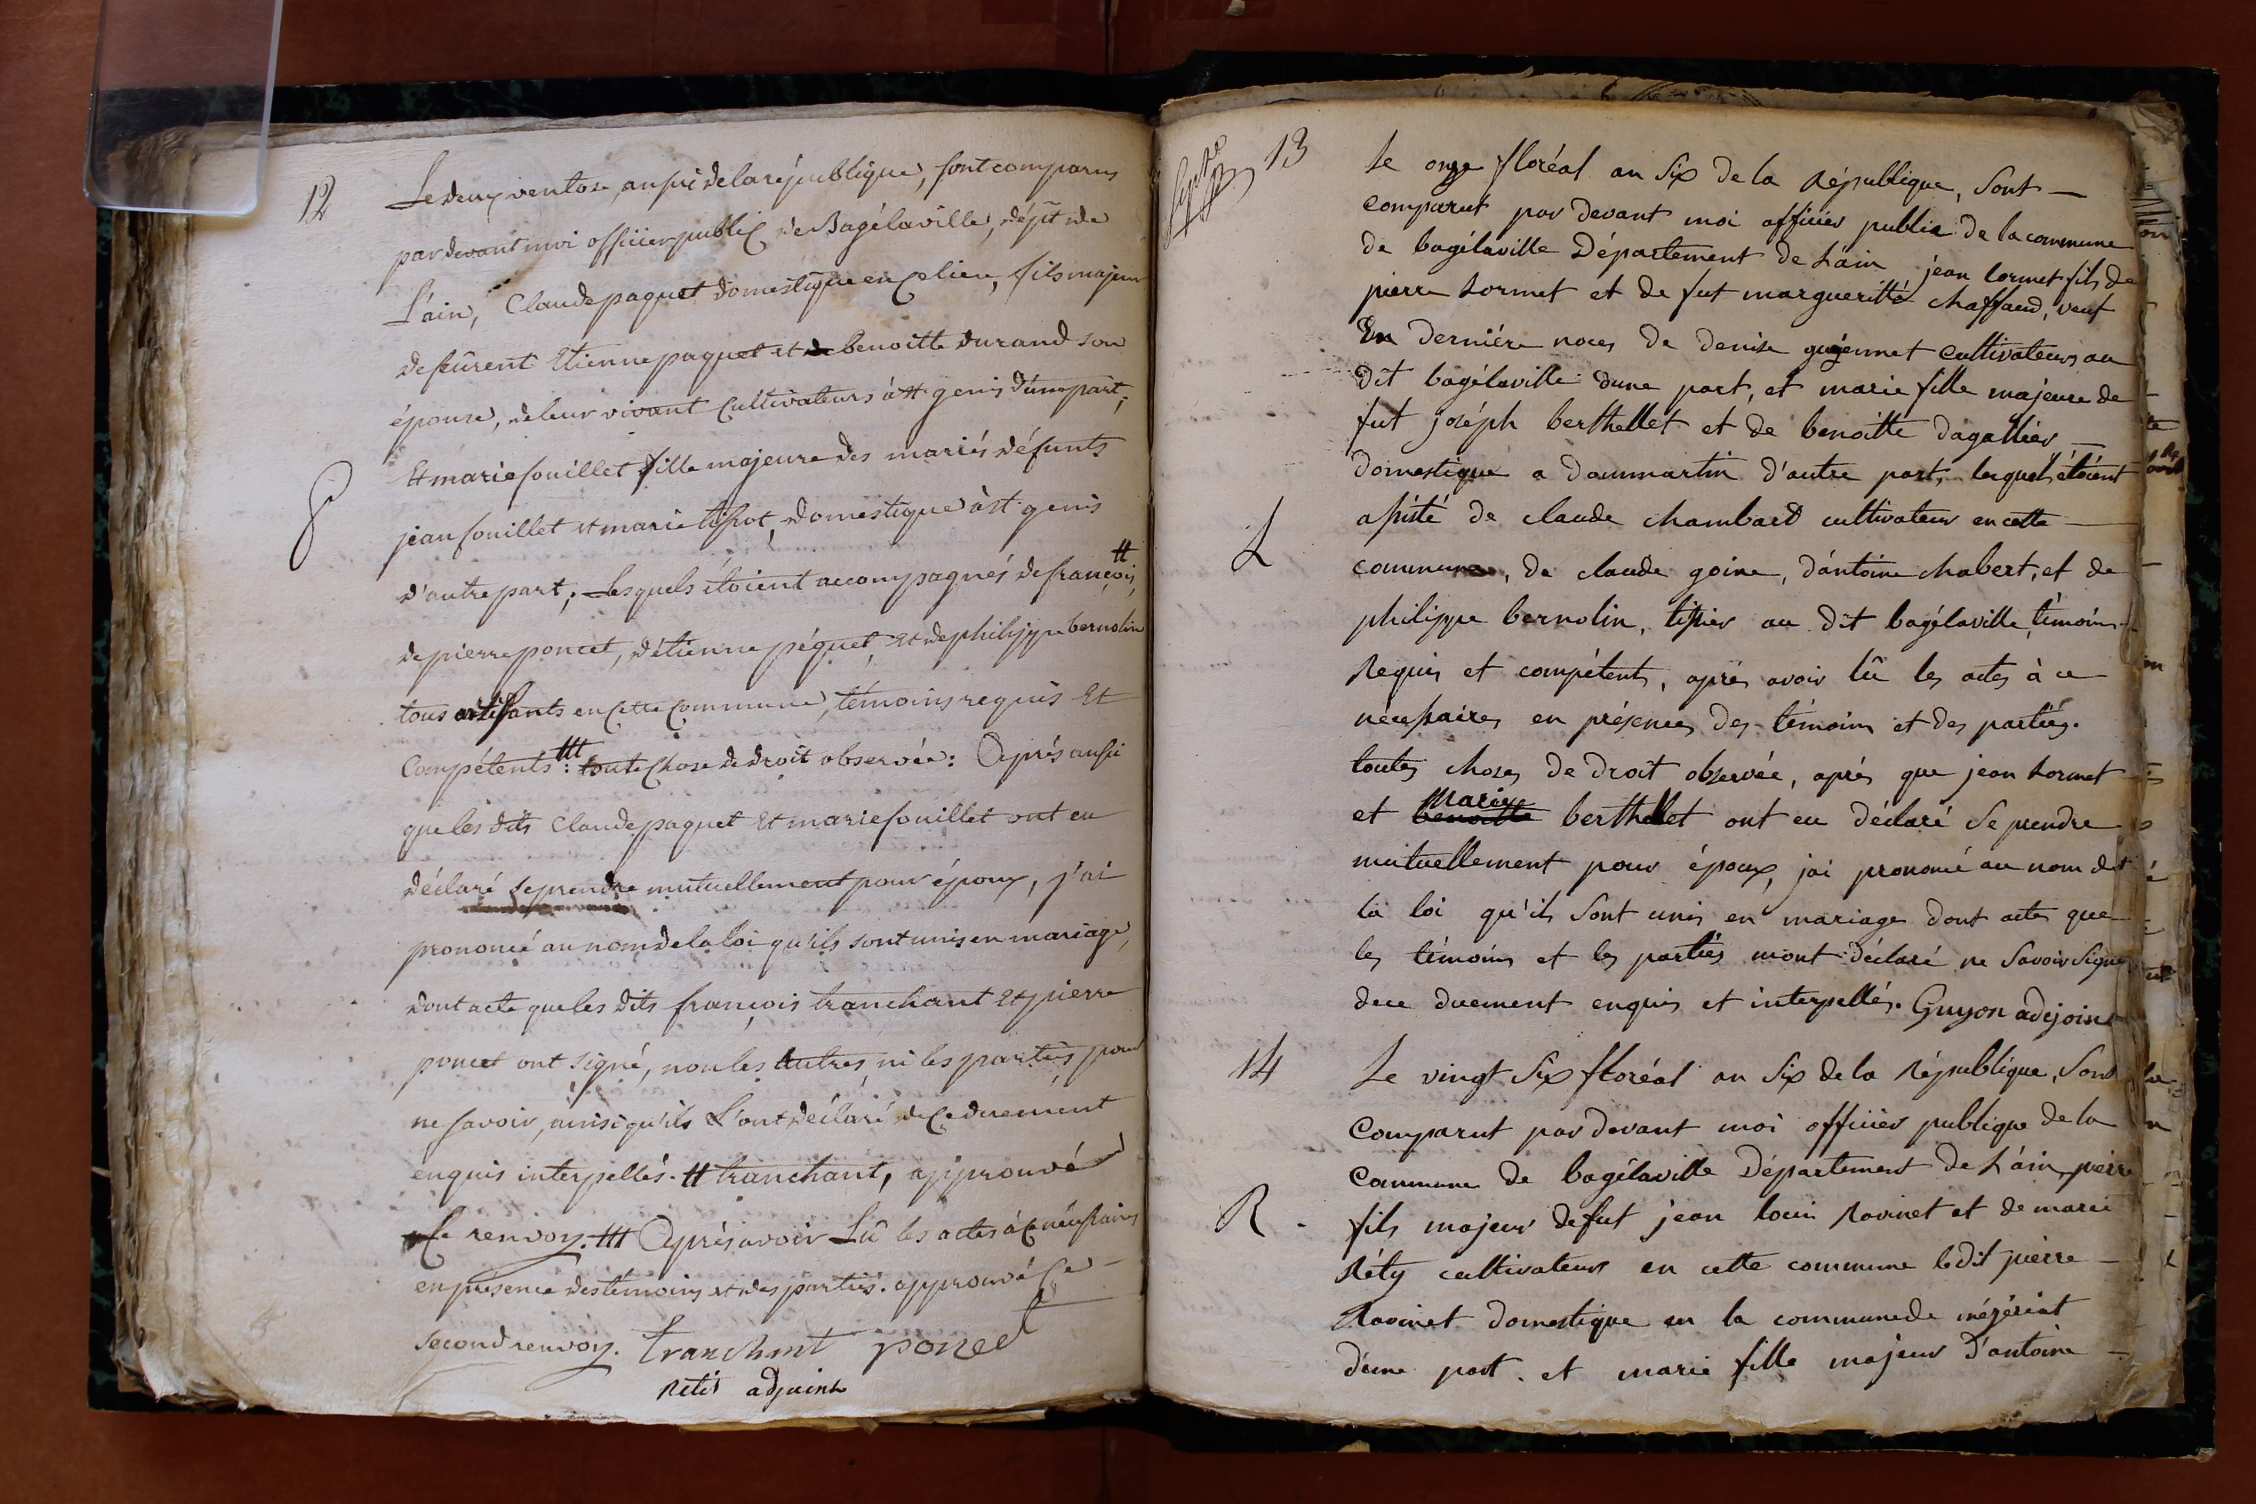 12
Le deux ventose, an six de la république, sont comparus
par devant moi officier public de Bagélaville, dépt de
L'ain, Claude paquet domestique en ce lieu, fils majeur
de feûrent Etienne paquet et de benoitte durand son
épouse, de leur vivant cultivateurs à st genis d'une part;
P
Et marie fouillet fille majeure des mariés défunts
jean fouillet et marie tissot, domestique à st genis
d'autre part; Lesquels étoient accompagnés de françois, #
de pierre poncet, d'étienne péquet, et de philippe bernolin
tous artisants en cette commune, témoins requis Et
Compétents: ### toute chose de droit observée: Après aussi
que les dits Claude paquet Et marie fouillet ont eu
déclaré se prendre mutuellement pour époux, j'ai
prononcé au nom de la loi qu'ils sont unis en mariage,
dont acte que les dits françois tranchant Et pierre
poncet ont signé, non les autres, ni les parties pour
ne savoir, ainsi qu'ils L'ont déclaré de ce duement
enquis interpellés. # tranchant, approuvé
Ce renvoy. ### Après avoir Lû les actes à ce nécessaires
en présence des témoins et des parties. approuvé Ce
second renvoy. tranchant poncet
Retis adjoint
13
Le onze floréal an Six de la République, Sont
comparut par devant moi officier public de la commune
de bagélaville Département de L'ain jean Lormet fils de
pierre Lormet et de fut margueritte chaffaud, veuf
En derniére noces de denise guyennet cultivateurs au
dit bagélaville d'une part, et marie fille majeure de
fut joséph berthellet et de benoitte dagallier
domestique a dommartin d'autre part, lequel étoient
L
assisté de claude chambard cultivateur en cette
commune, de claude goine, d'antoine chabert, et de
philippe bernolin, tissier au dit bagélaville, témoins
Requis et compétents, après avoir lû les actes à ce
nécessaires en présences des témoins et des parties.
toutes choses de droit observée, après que jean Lormet
marie
et benoitte berthellet ont eu déclaré Se prendre
mutuellement pour époux, jai prononcé au nom de
la loi qu'ils Sont unis en mariage dont acte que
les témoins et les parties mont déclaré ne Savoir Signer
de ce duement enquis et interpellés. Guyon adejoint
14
Le vingt Six floréal an Six de la République, Sont
Comparut par devant moi officier publique de la
Commune de bagélaville Département de L'ain, pierre
R
fils majeur de fut jean louis Ravinet et de marie
Réty cultivateurs en cette commune ledit pierre
Ravinet domestique en la commune de mézériat
d'une part. et marie fille majeur d'antoine